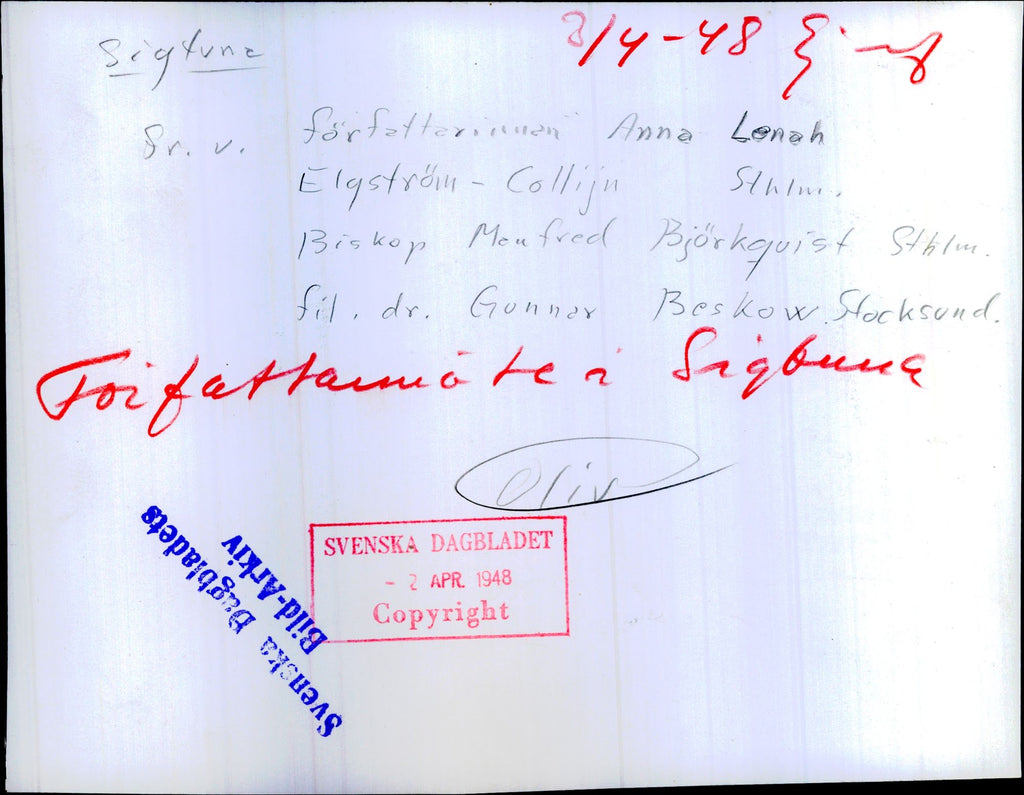 Sigtuna
3/4-48
Fr. v. författarinnan Anna Lenah
Elgström-Collijn Sthlm.
Biskop Manfred Björkquist Sthlm.
fil. dr. Gunnar Beskow. Stocksund.
Författarmöte i Sigtuna
Oliv
SVENSKA DAGBLADET
- 2 APR. 1948
Copyright
Svenska Dagbladets
Bild-Arkiv